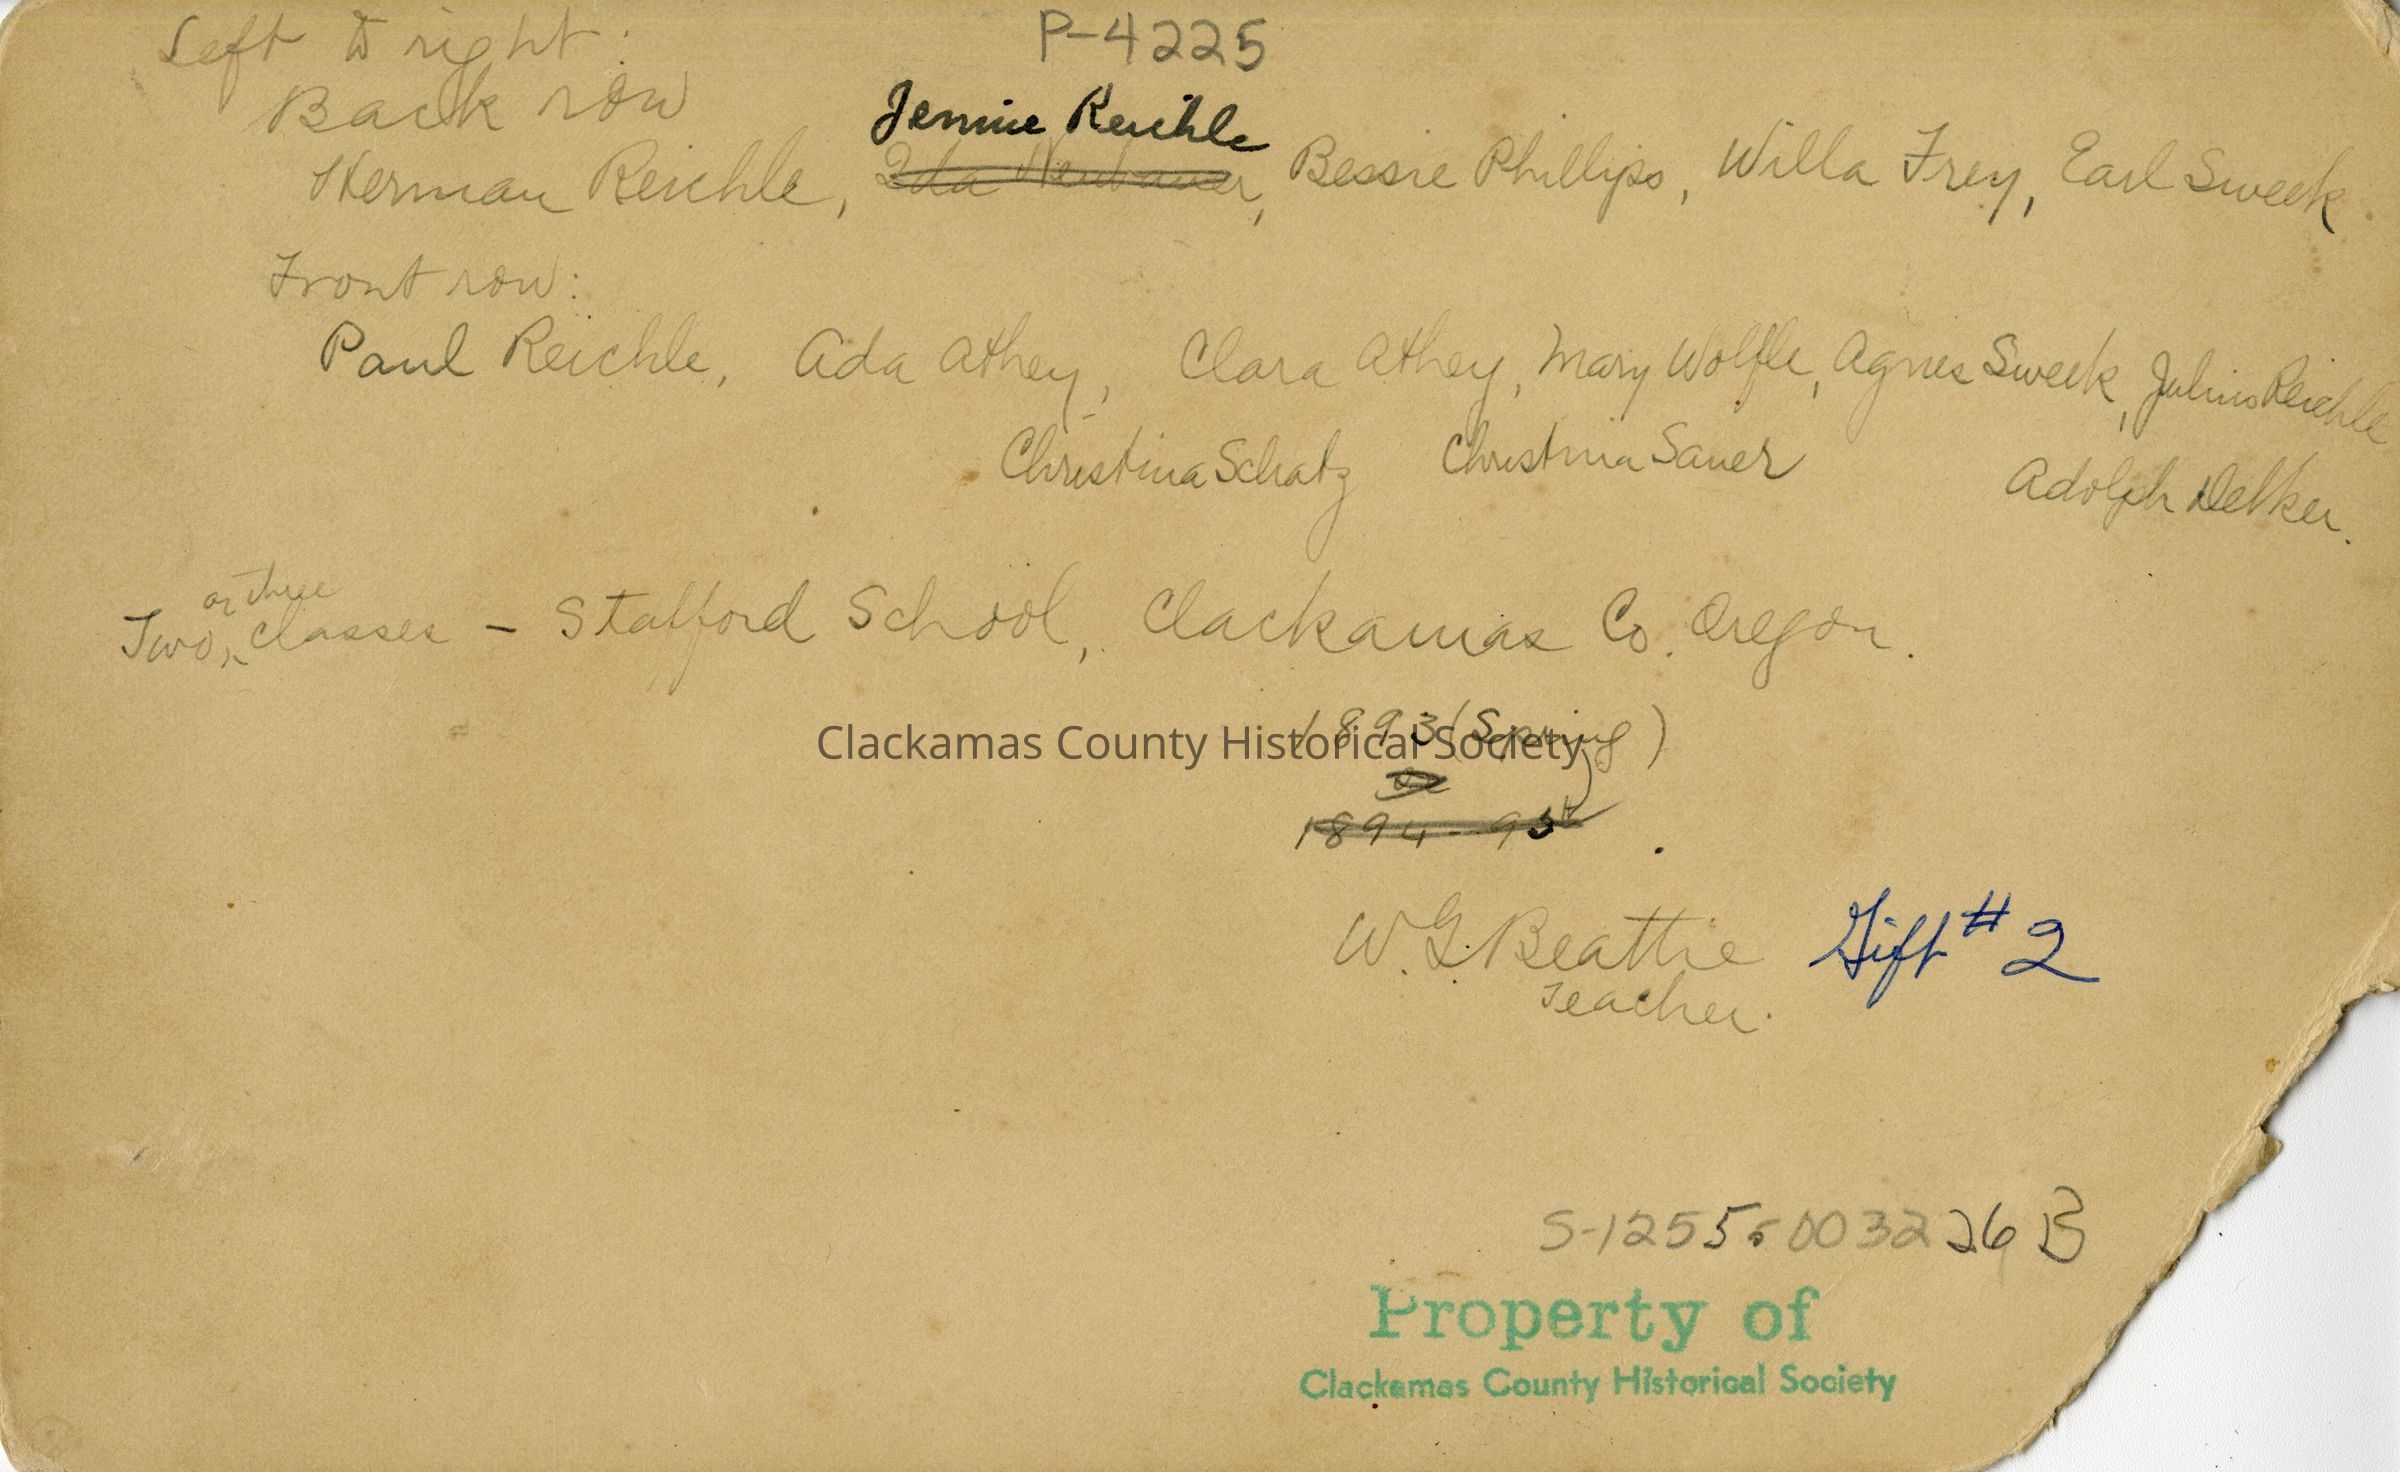 P-4225
Left to right:
Back row
Jennie Reichle
Herman Reichle, Ida Neubauer, Bessie Phillips, Willa Frey, Earl Sweek
Front row:
Paul Reichle, Ada Athey, Clara Athey, Mary Wolfle, Agnes Sweek, Julius Reichle
Christina Schatz Christina Sauer Adolph Delker.
or three
Two, classes - Stafford School, Clackamas Co. Oregon.
1893 (Spring)
Clackamas County Historical Society
or
1894-95
W. G. Beattie Gift #2
Teacher.
S-1255.003226B
Property of
Clackamas County Historical Society